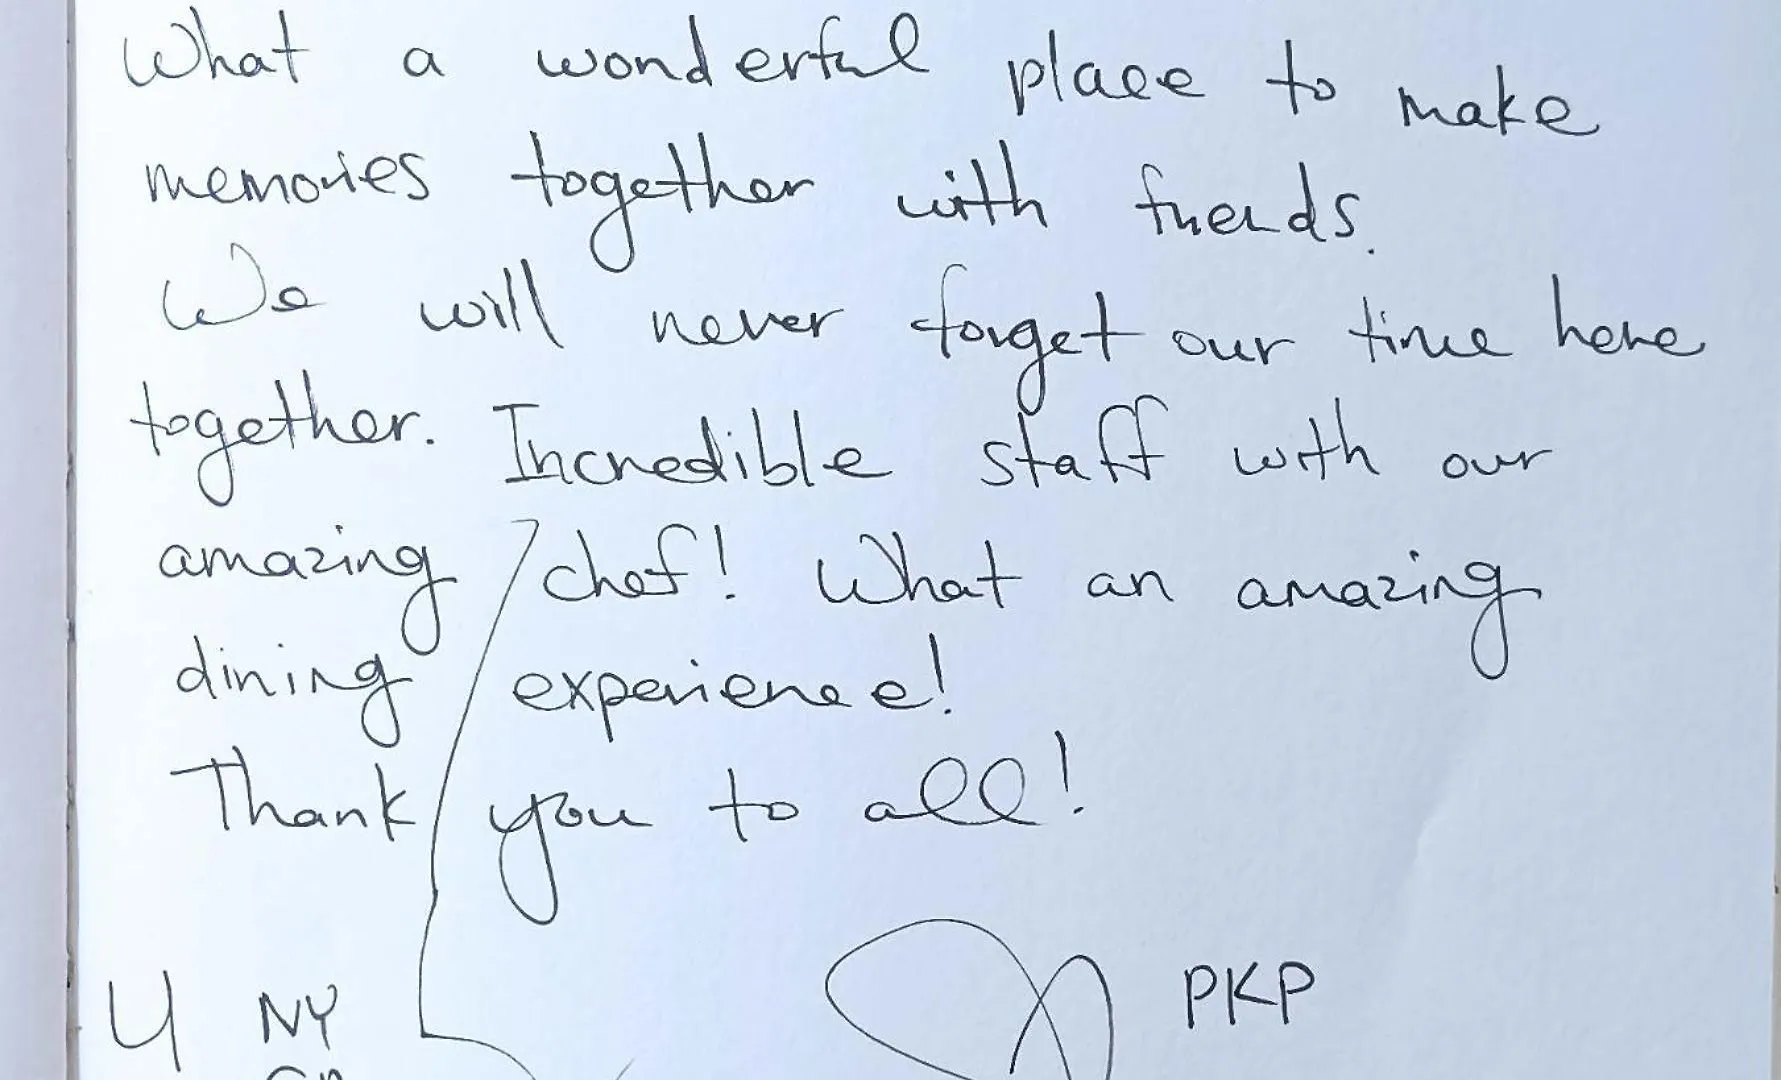 What a wonderful place to make
memories together with friends.
We will never forget our time here
together. Incredible staff with our
amazing chef! What an amazing
dining experience!
Thank you to all!
4 NY PKP